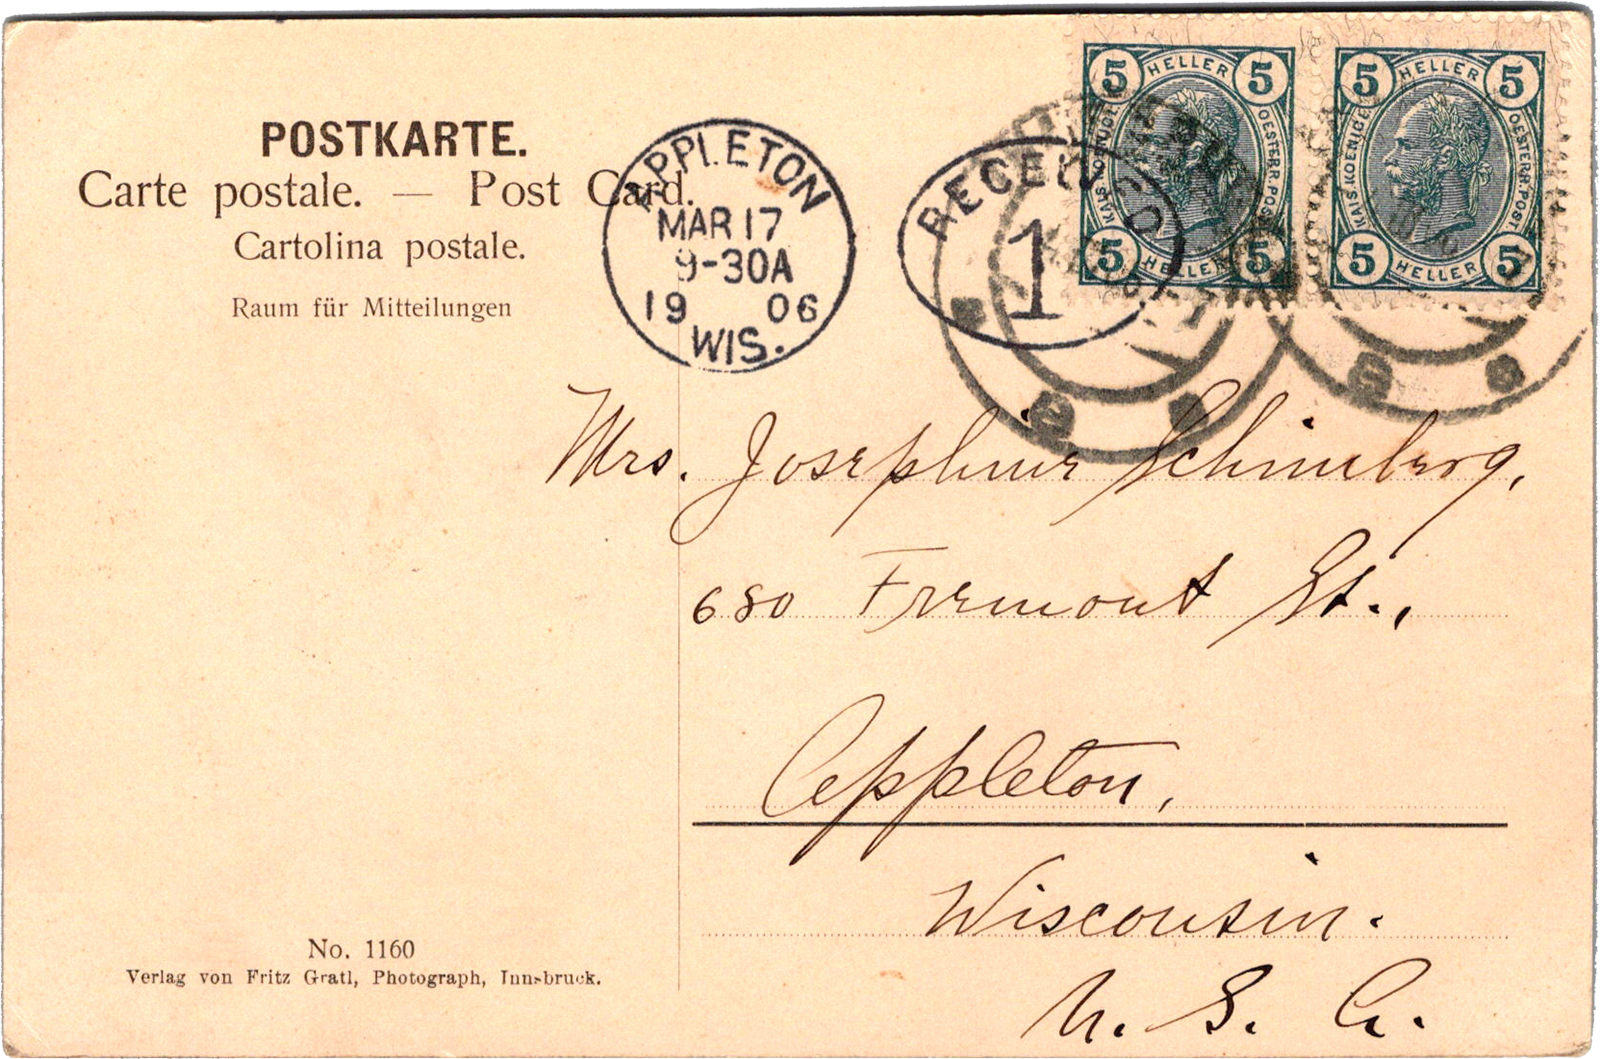 POSTKARTE.
Carte postale. — Post Card.
Cartolina postale.
Raum für Mitteilungen
APPLETON
MAR 17
9-30A
19 06
WIS.
RECEIVED
1
5 HELLER 5
KAIS. KOENIGL. OESTERR. POST
5 HELLER 5
5 HELLER 5
KAIS. KOENIGL. OESTERR. POST
5 HELLER 5
Mrs. Josephine Schimberg,
680 Fremont St.,
Appleton,
Wisconsin.
U. S. A.
No. 1160
Verlag von Fritz Gratl, Photograph, Innsbruck.